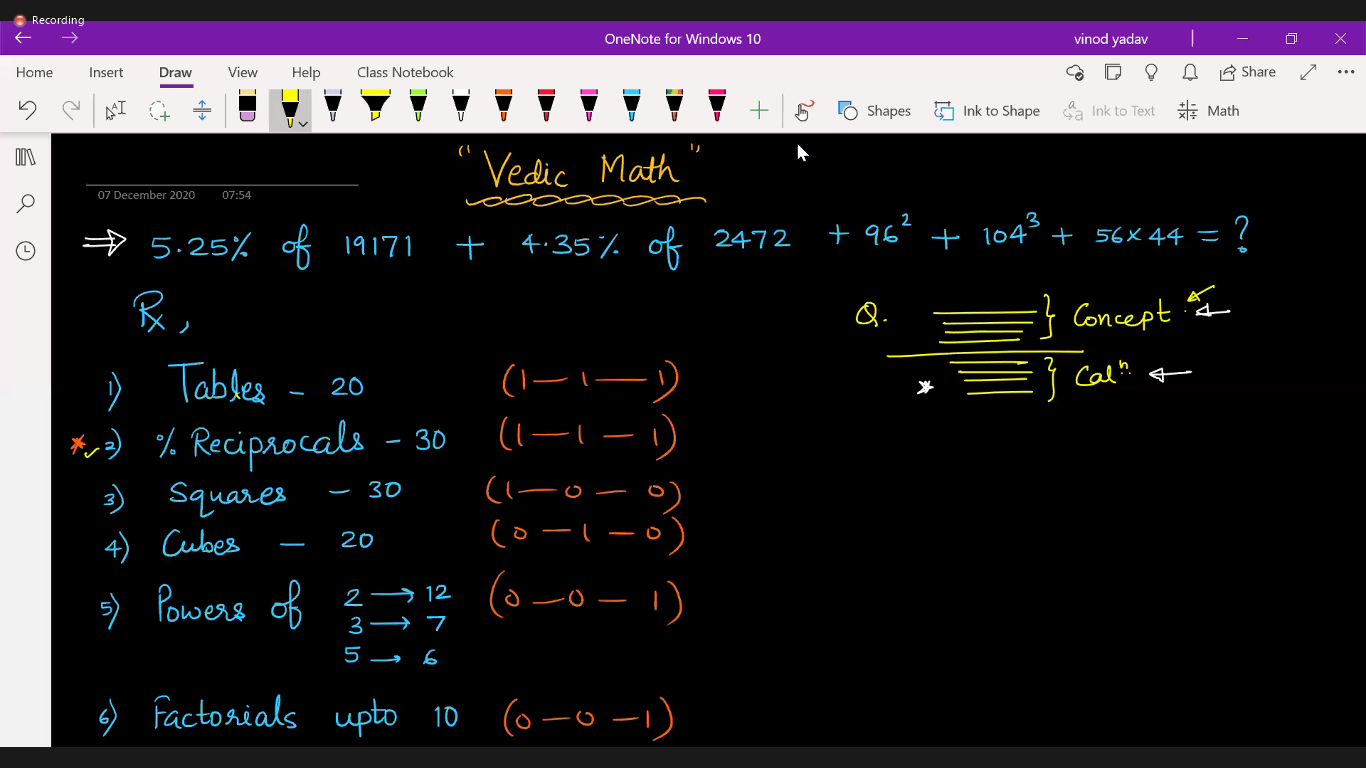 Recording
OneNote for Windows 10
vinod yadav
Home Insert Draw View Help Class Notebook Share
Shapes Ink to Shape Ink to Text Math
"Vedic Math"
07 December 2020 07:54
⇒ 5.25% of 19171 + 4.35% of 2472 + 96² + 104³ + 56×44 = ?
Rx,
Q. } Concept ←
* } Calⁿ ←
1) Tables - 20 (1—1—1)
* ✓ 2) % Reciprocals - 30 (1—1—1)
3) Squares - 30 (1—0—0)
4) Cubes — 20 (0—1—0)
5) Powers of 2 → 12 (0—0—1)
3 → 7
5 → 6
6) Factorials upto 10 (0—0—1)